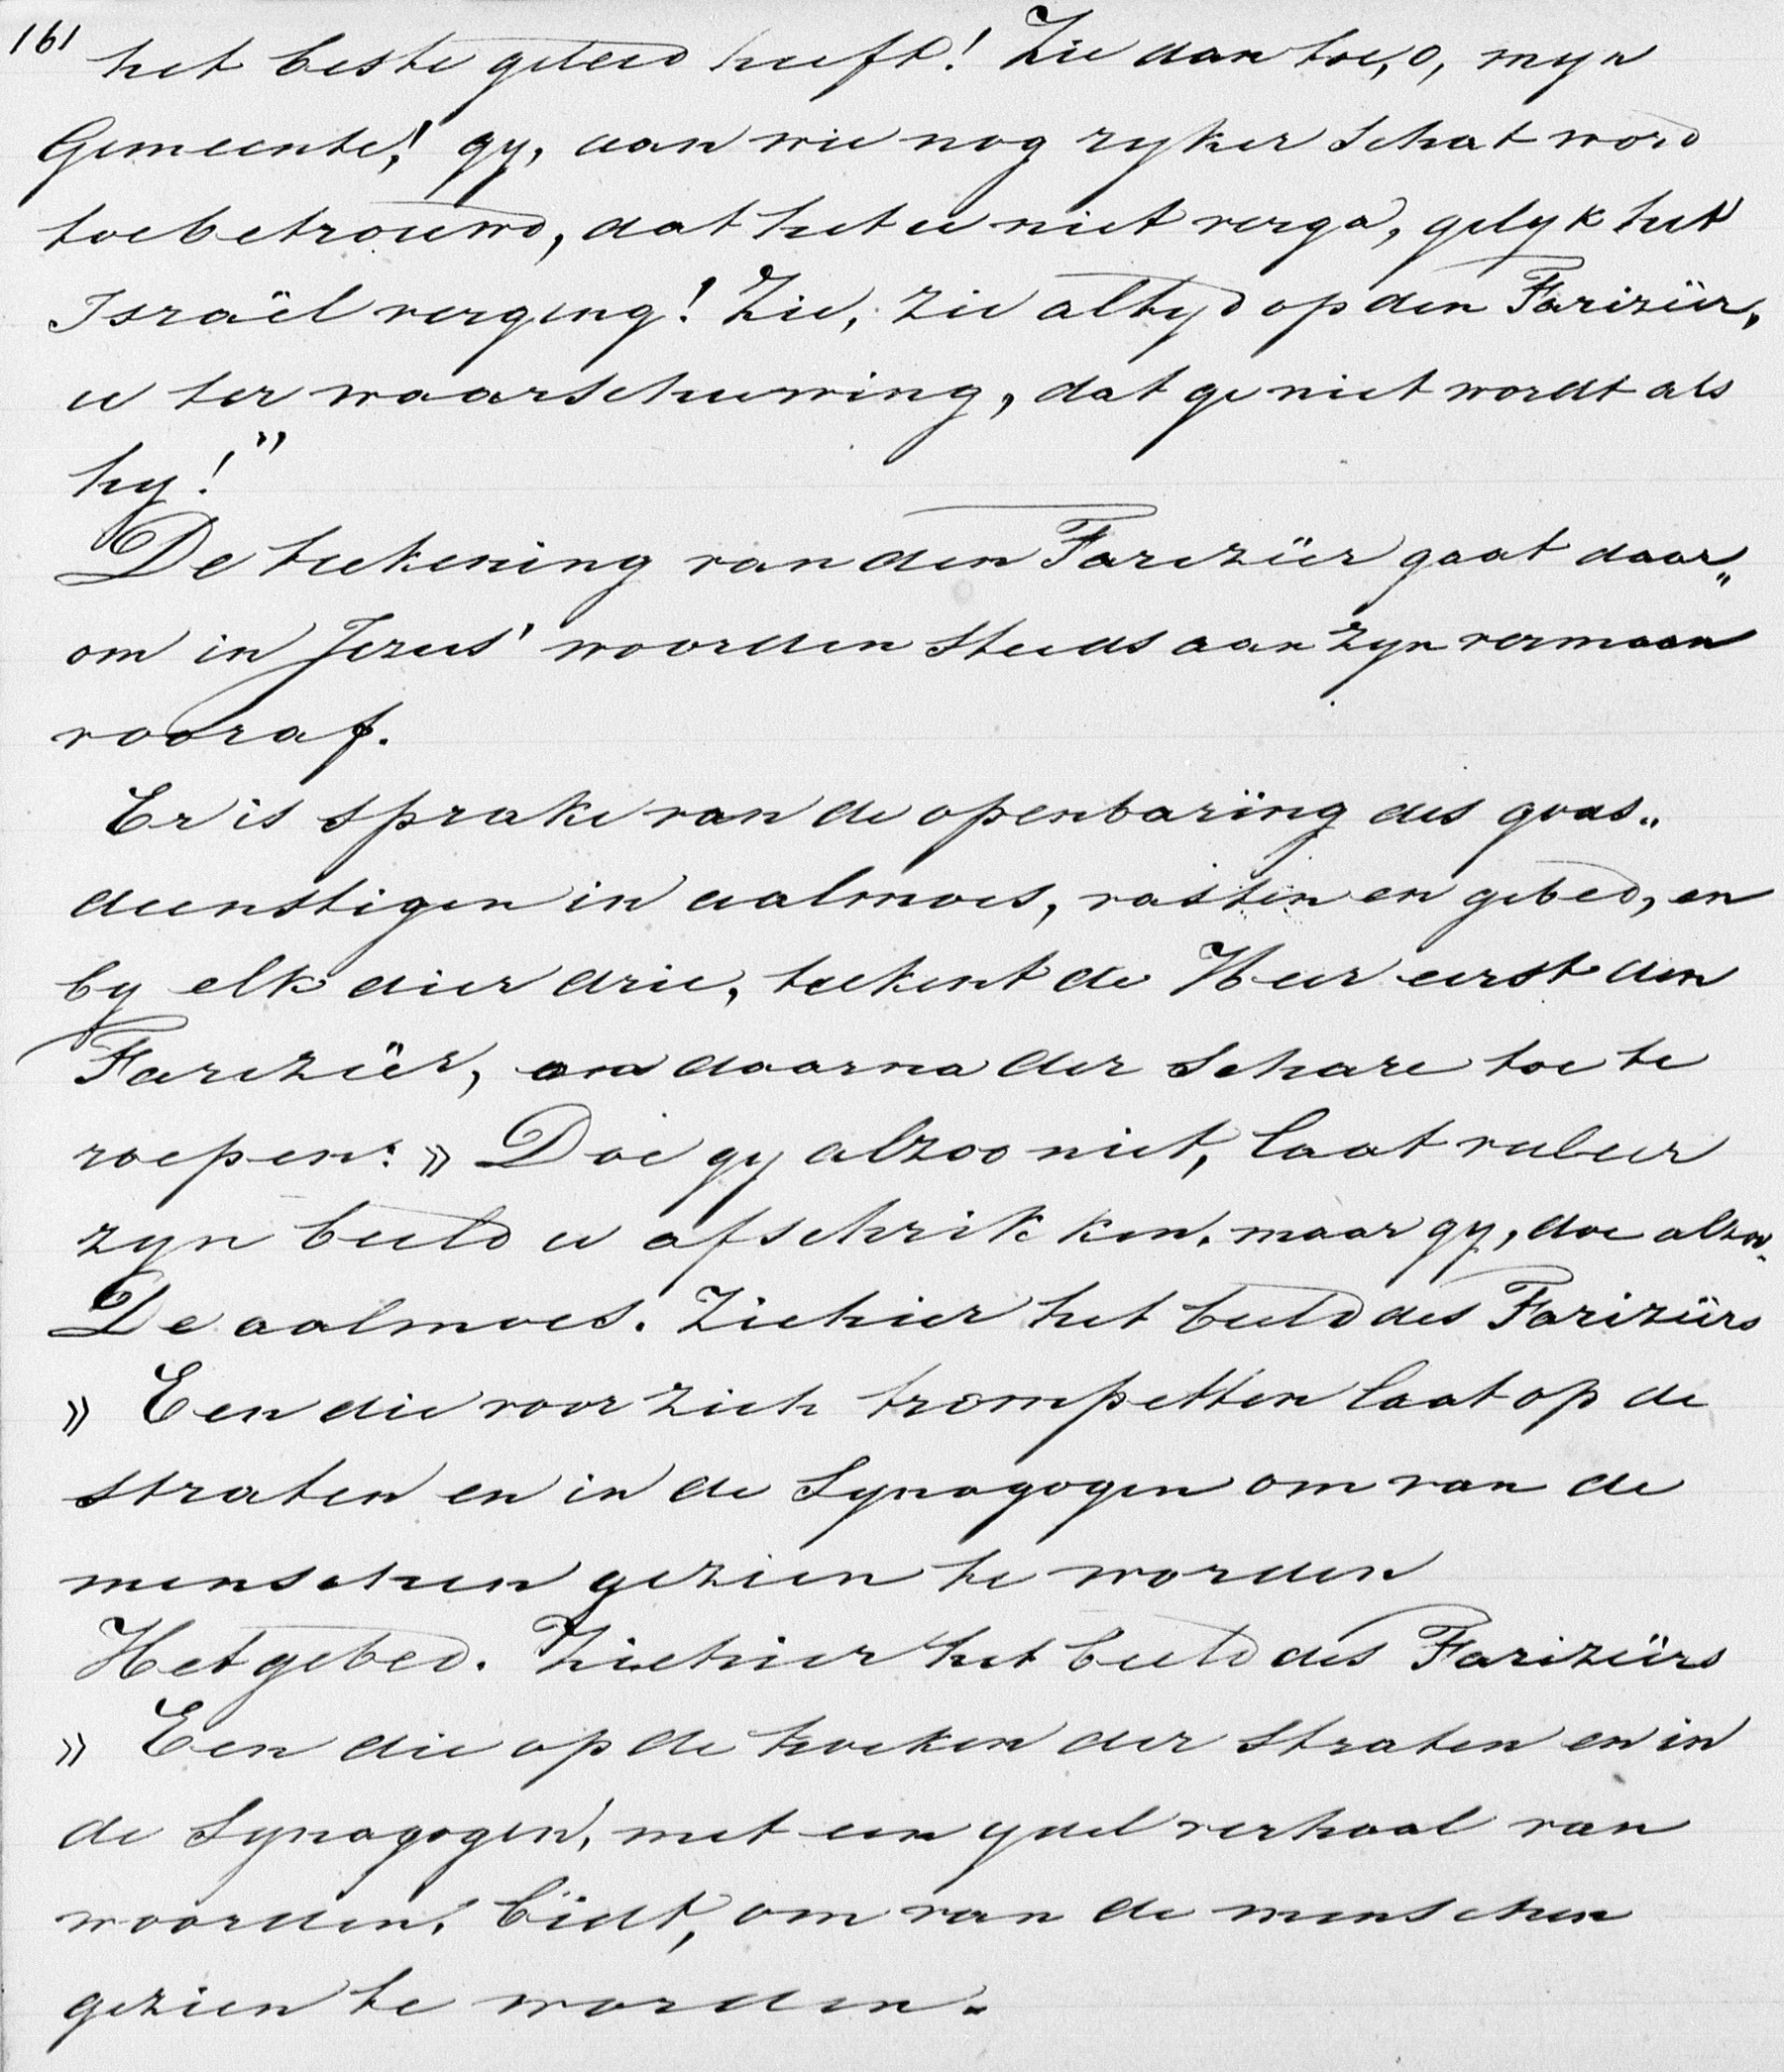 161
het beste geleid heeft! Zie dan toe, o, myn
Gemeente! gy, aan wie nog ryker schat word
toebetrouwd, dat het u niet verga, gelyk het
Israël verging! Zie, zie altyd op den Farizeër,
u ter waarschuwing, dat ge niet wordt als
hy!"
De teekening van den Farizeër gaat daar„
om in Jezus' woorden steeds aan zyn vermaan
vooraf.
Er is sprake van de openbaring des gods„
dienstigen in aalmoes, vasten en gebed, en
by elk dier drie, teekent de Heer eerst den
Farizeër, om daarna der schare toe te
roepen: » Doe gy alzoo niet, laat veleer
zyn beeld u afschrikken, maar gy, doe alzoo.
De aalmoes. Ziehier het beeld des Farizeërs
» Een die voor zich trompetten laat op de
straten en in de Synagogen om van de
menschen gezien te worden
Het gebed. Ziehier het beeld des Farizeërs
» Een die op de hoeken der straten en in
de Synagogen, met een ydel verhaal van
woorden, bidt, om van de menschen
gezien te worden.